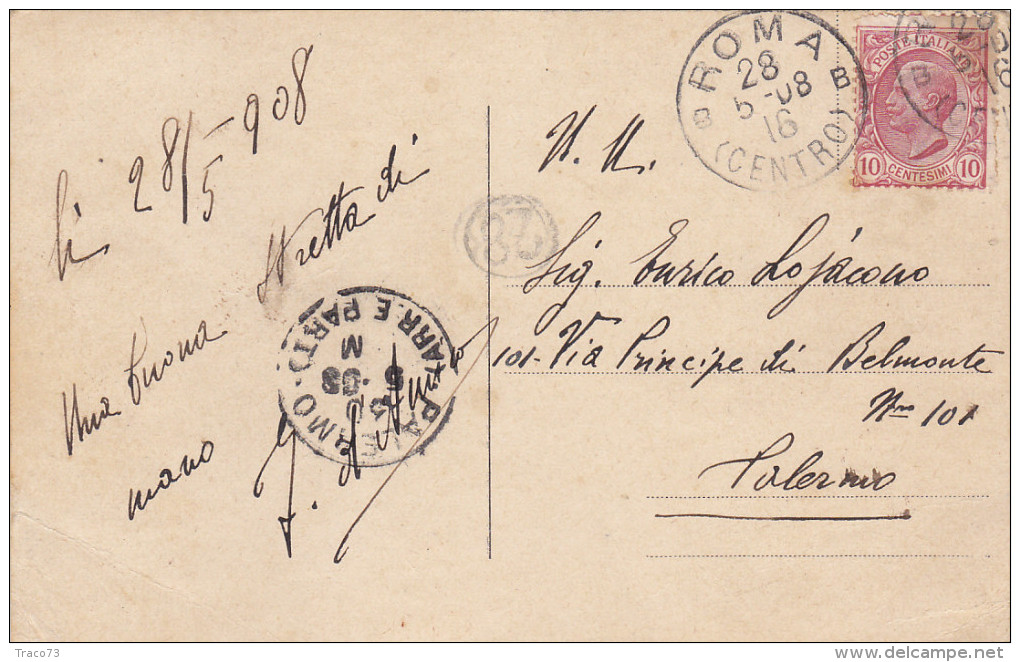 li 28/5-908
Una buona stretta di
mano
ROMA
28
5-08
16
(CENTRO)
B B
POSTE ITALIANE
10 CENTESIMI 10
28
PALERMO ARR. E PART.
N. N.
Sig. Enrico Lojacono
101- Via Principe di Belmonte
Nro 101
Palermo
Traco73